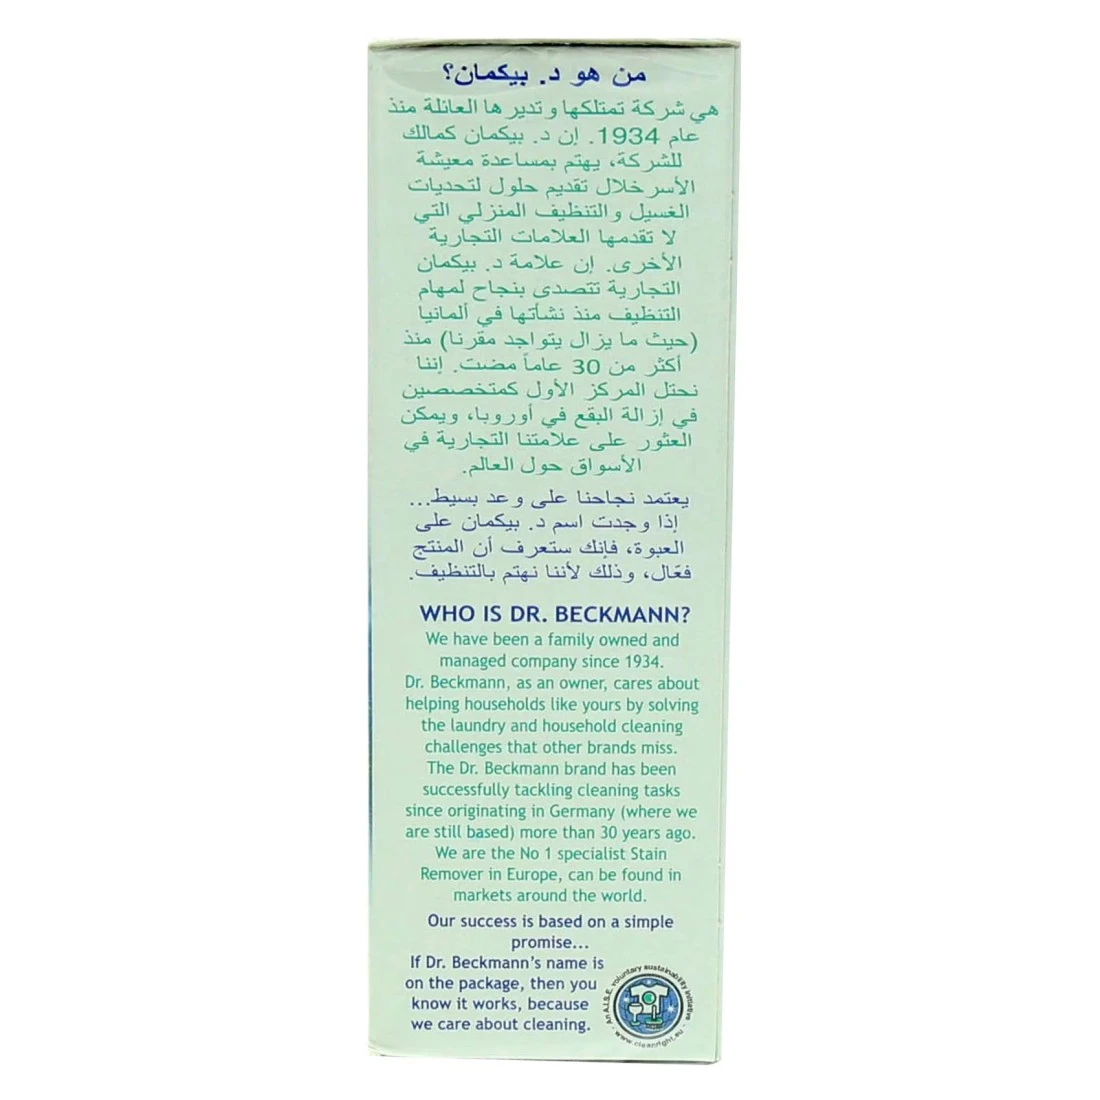 من هو د. بيكمان؟
هي شركة تمتلكها وتديرها العائلة منذ
عام 1934. إن د. بيكمان كمالك
للشركة، يهتم بمساعدة معيشة
الأسر خلال تقديم حلول لتحديات
الغسيل والتنظيف المنزلي التي
لا تقدمها العلامات التجارية
الأخرى. إن علامة د. بيكمان
التجارية تتصدى بنجاح لمهام
التنظيف منذ نشأتها في ألمانيا
(حيث ما يزال يتواجد مقرنا) منذ
أكثر من 30 عاماً مضت. إننا
نحتل المركز الأول كمتخصصين
في إزالة البقع في أوروبا، ويمكن
العثور على علامتنا التجارية في
الأسواق حول العالم.
يعتمد نجاحنا على وعد بسيط...
إذا وجدت اسم د. بيكمان على
العبوة، فإنك ستعرف أن المنتج
فعّال، وذلك لأننا نهتم بالتنظيف.
WHO IS DR. BECKMANN?
We have been a family owned and
managed company since 1934.
Dr. Beckmann, as an owner, cares about
helping households like yours by solving
the laundry and household cleaning
challenges that other brands miss.
The Dr. Beckmann brand has been
successfully tackling cleaning tasks
since originating in Germany (where we
are still based) more than 30 years ago.
We are the No 1 specialist Stain
Remover in Europe, can be found in
markets around the world.
Our success is based on a simple
promise...
If Dr. Beckmann's name is
on the package, then you
know it works, because
we care about cleaning.
An A.I.S.E. voluntary sustainability initiative
- www.cleanright.eu -